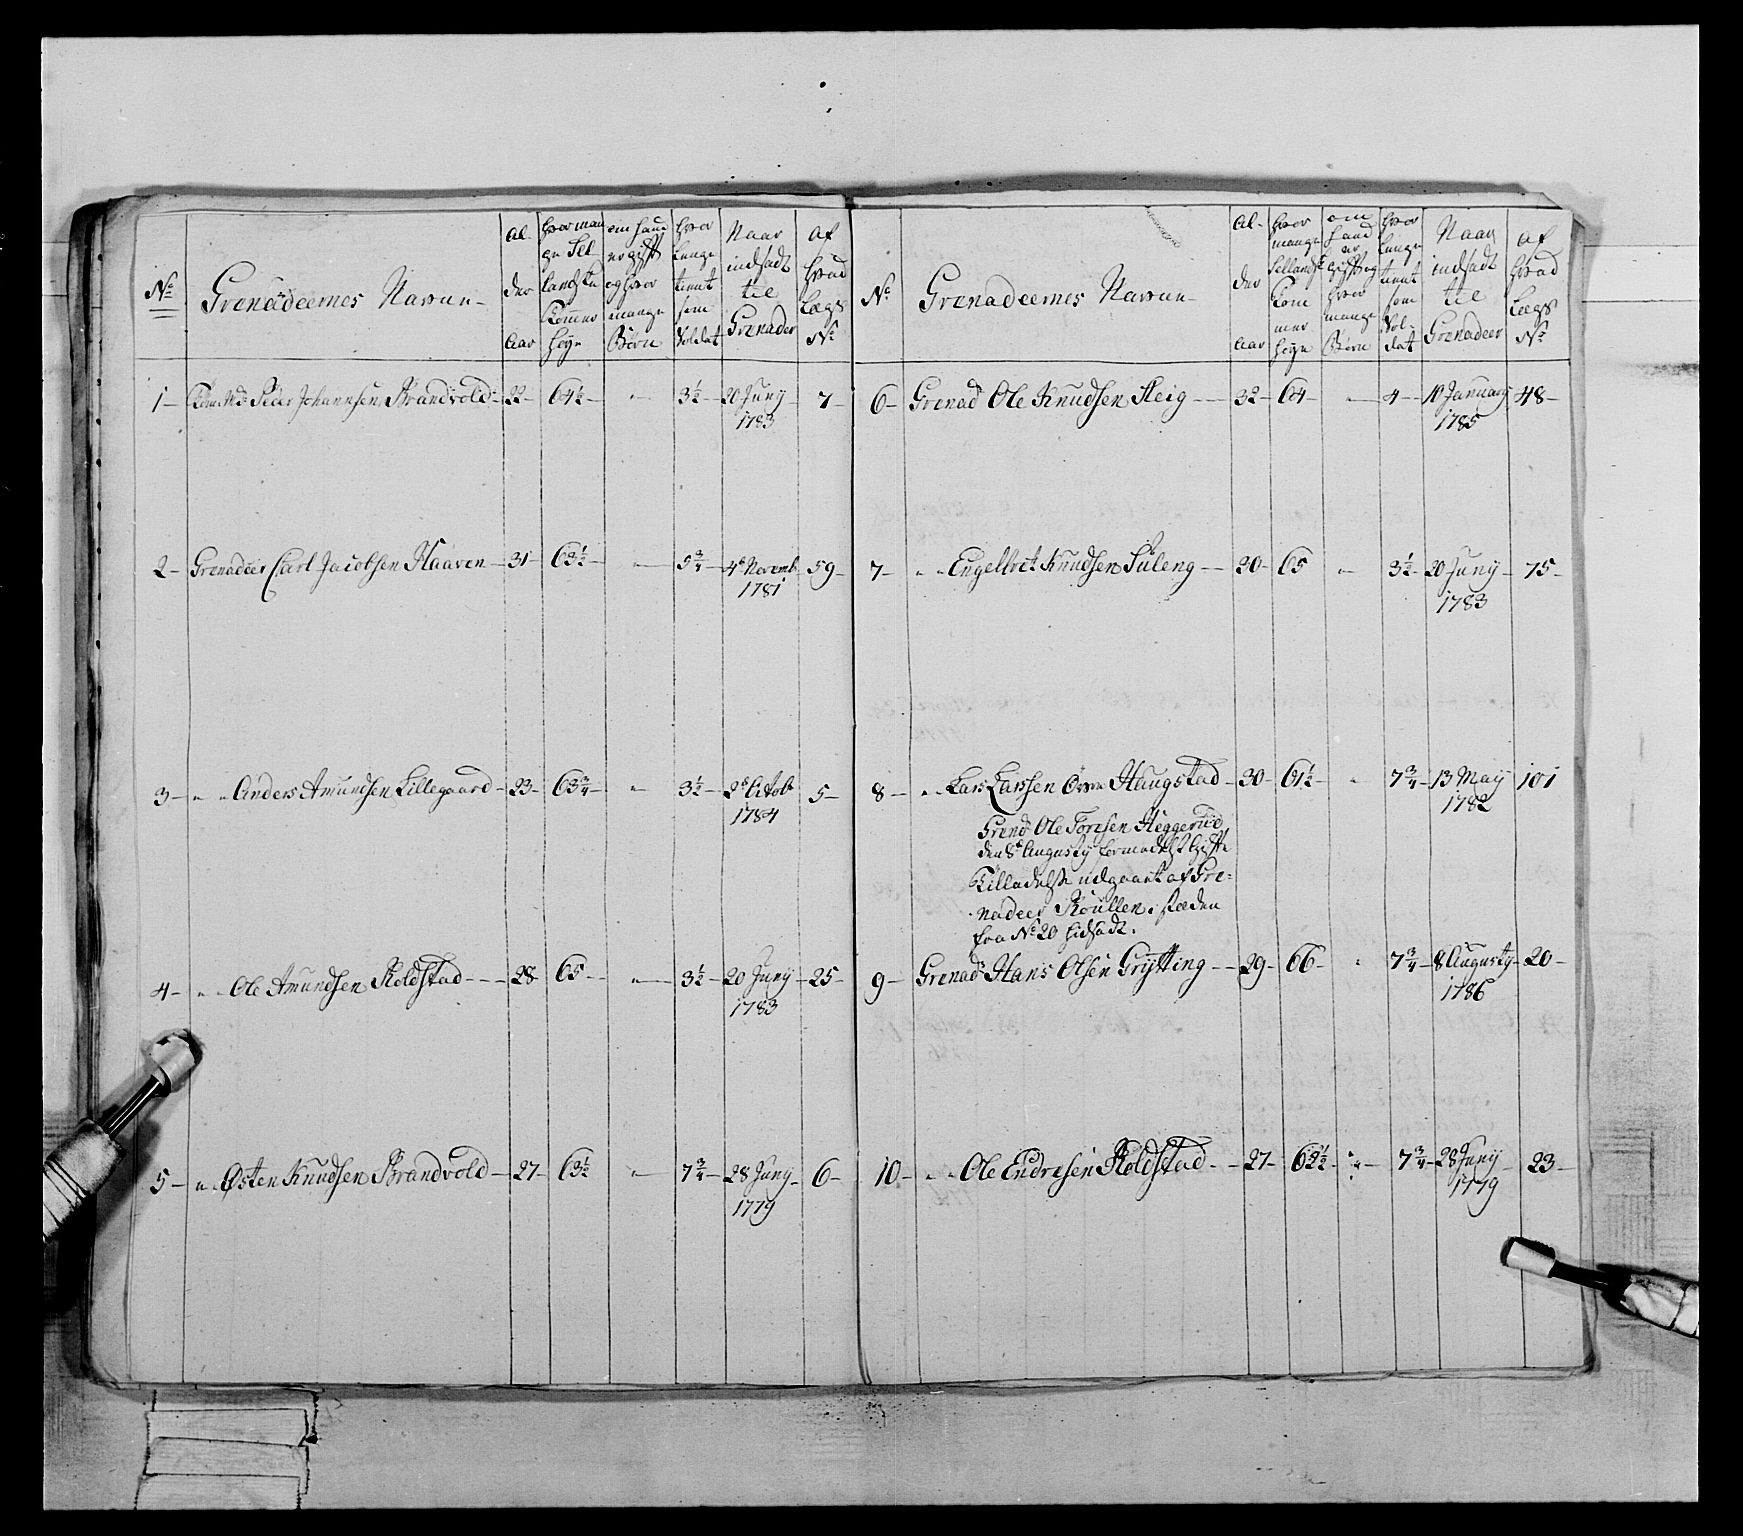 No
Grenadeernes Navne
Al-
der
Aar
hvor man
ge Sel
landske
Tommer
høye
om hand
er gift
og hvor
mange
Børn
hvor
lenge
tient
som
Soldat
Naar
indsadt
til
Grenader
af
hvad
Lægs
No
1 Peder Johannsen Brandvold 22 64½ " 3½ 20 Juny 7
1783
2 Grenadeer Carl Jacobsen Haaven 31 63½ " 5¾ 4d Novemb 59
1781
3 " " Anders Amundsen Lillegaard 23 63¾ " 3½ 2d Octob 5
1784
4 " " Ole Amundsen Koldstad 28 65 " 3½ 20 Juny 25
1783
5 " " Østen Knudsen Brandvold 27 63½ " 7¾ 28 Juny 6
1779
No
Grenadeernes Navne
Al-
der
Aar
hvor
mange
Sellandsk
Tom
mer
høye
om
hand
er
gift og
hvor
mange
Børn
hvor
lenge
tient
som
Sol-
dat
Naar
indsadt
til
Grenadeer
af
hvad
Lægs
No
6 Grenad Ole Knudsen Steig 32 64 " 4 10 January 48
1785
7 " " Engelbret Knudsen Suleng 20 65 " 3½ 20 Juny 75
1783
8 " " Lars Larssen Øvre Haugstad 30 61½ " 7¾ 13 May 101
1782
Grend Ole Toresen Heggerud
den 8d Augusty formedelst Gifte
Tilladelse udgaaet af Gre-
nadeer Roullen, i stæden
fra No 20 hidsadt.
9 Grenad Hans Olsen Grytting 29 66 " 7¾ 8 Augusty 20
1786
10 " " Ole Endresen Koldstad 27 62½ " 7¾ 28 Juny 23
1779